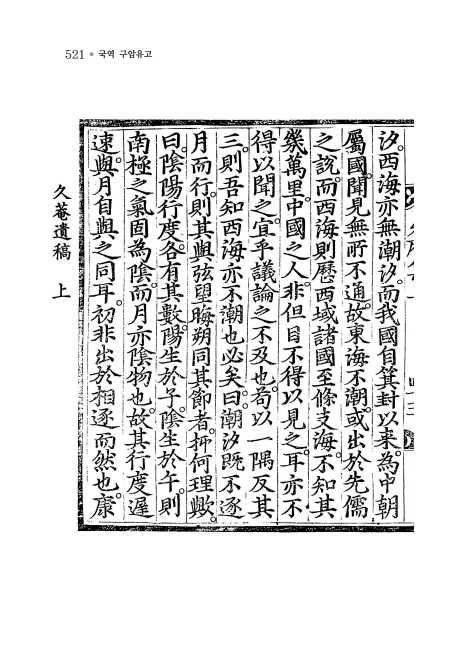 521 ● 국역 구암유고
汐。西海亦無潮汐。而我國自箕封以来。為中朝
屬國。聞見無所不通。故東海不潮。或出於先儒
之説。而西海則歷西域諸國至條支海。不知其
幾萬里。中國之人。非但目不得以見之。耳亦不
得以聞之。宜乎議論之不及也。苟以一隅反其
三。則吾知西海亦不潮也必矣。曰。潮汐既不逐
月而行。則其與弦望晦朔同其節者。抑何理歟。
曰。陰陽行度。各有其數。陽生於子。陰生於午。則
南極之氣固為陰。而月亦陰物也。故其行度遲
速。與月自與之同耳。初非出於相逐而然也。康
久菴遺稿 上